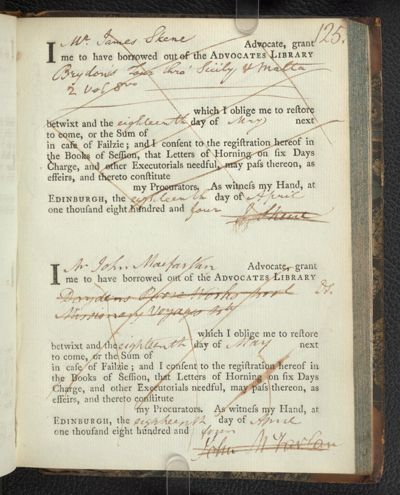 125.
I Mr. James Skene Advocate, grant
me to have borrowed out of the ADVOCATES LIBRARY
Brydon's Tour thro' Sicily & Malta
2 vol 8vo
which I oblige me to reſtore
betwixt and the eighteenth day of May next
to come, or the Sum of
in caſe of Failzie; and I conſent to the regiſtration hereof in
the Books of Seſſion, that Letters of Horning on ſix Days
Charge, and other Executorials needful, may paſs thereon, as
effeirs, and thereto conſtitute
my Procurators. As witneſs my Hand, at
EDINBURGH, the eighteenth day of April
one thouſand eight hundred and four J. Skene
I Mr John Macfarlan Advocate, grant
me to have borrowed out of the ADVOCATES LIBRARY
Drydens Prose Works
Missionary Voyage
which I oblige me to reſtore
betwixt and the eighteenth day of May next
to come, or the Sum of
in caſe of Failzie; and I conſent to the regiſtration hereof in
the Books of Seſſion, that Letters of Horning on ſix Days
Charge, and other Executorials needful, may paſs thereon, as
effeirs, and thereto conſtitute
my Procurators. As witneſs my Hand, at
EDINBURGH, the eighteenth day of April
one thouſand eight hundred and four
John McFarlan